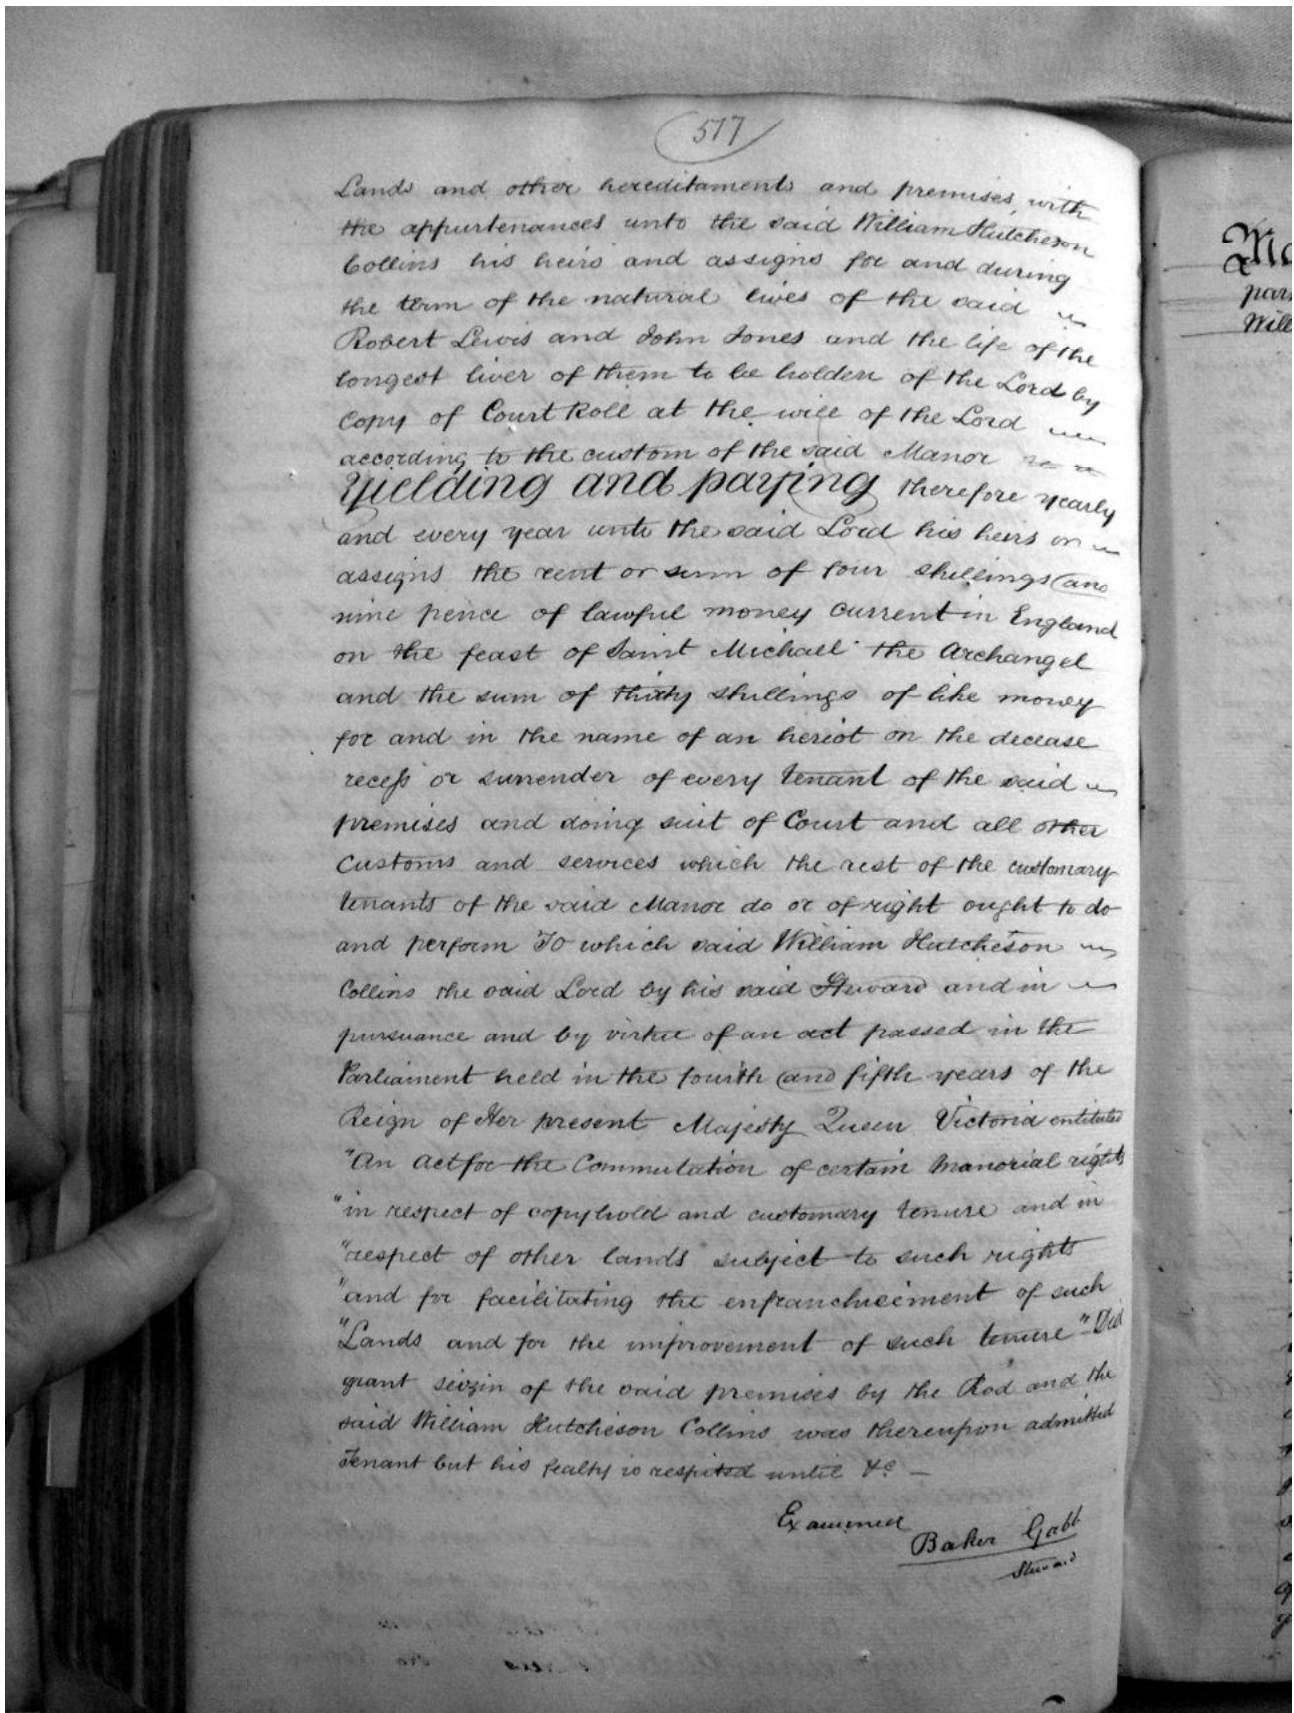 517
Lands and other hereditaments and premises, with
the appurtenances unto the said William Hutcheson
Collins his heirs and assigns for and during
the term of the natural lives of the said
Robert Lewis and John Jones and the life of the
longest liver of them to be holden of the Lord by
Copy of Court Roll at the will of the Lord
according to the custom of the said Manor
Yielding and paying therefore yearly
and every year unto the said Lord his heirs or
assigns the rent or sum of four shillings and
nine pence of lawful money current in England
on the feast of Saint Michael the Archangel
and the sum of thirty shillings of like money
for and in the name of an heriot on the decease
recess or surrender of every tenant of the said
premises and doing suit of Court and all other
Customs and services which the rest of the customary
tenants of the said Manor do or of right ought to do
and perform To which said William Hutcheson
Collins the said Lord by his said Steward and in
pursuance and by virtue of an act passed in the
Parliament held in the fourth and fifth years of the
Reign of Her present Majesty Queen Victoria entituled
"An Act for the Commutation of certain Manorial rights
"in respect of copyhold and customary tenure and in
"respect of other lands subject to such rights
"and for facilitating the enfranchisement of such
"Lands and for the improvement of such tenure" Did
grant seizin of the said premises by the Rod and the
said William Hutcheson Collins was thereupon admitted
Tenant but his fealty is respited until &c —
Examined
Baker Gabb
Steward
Will